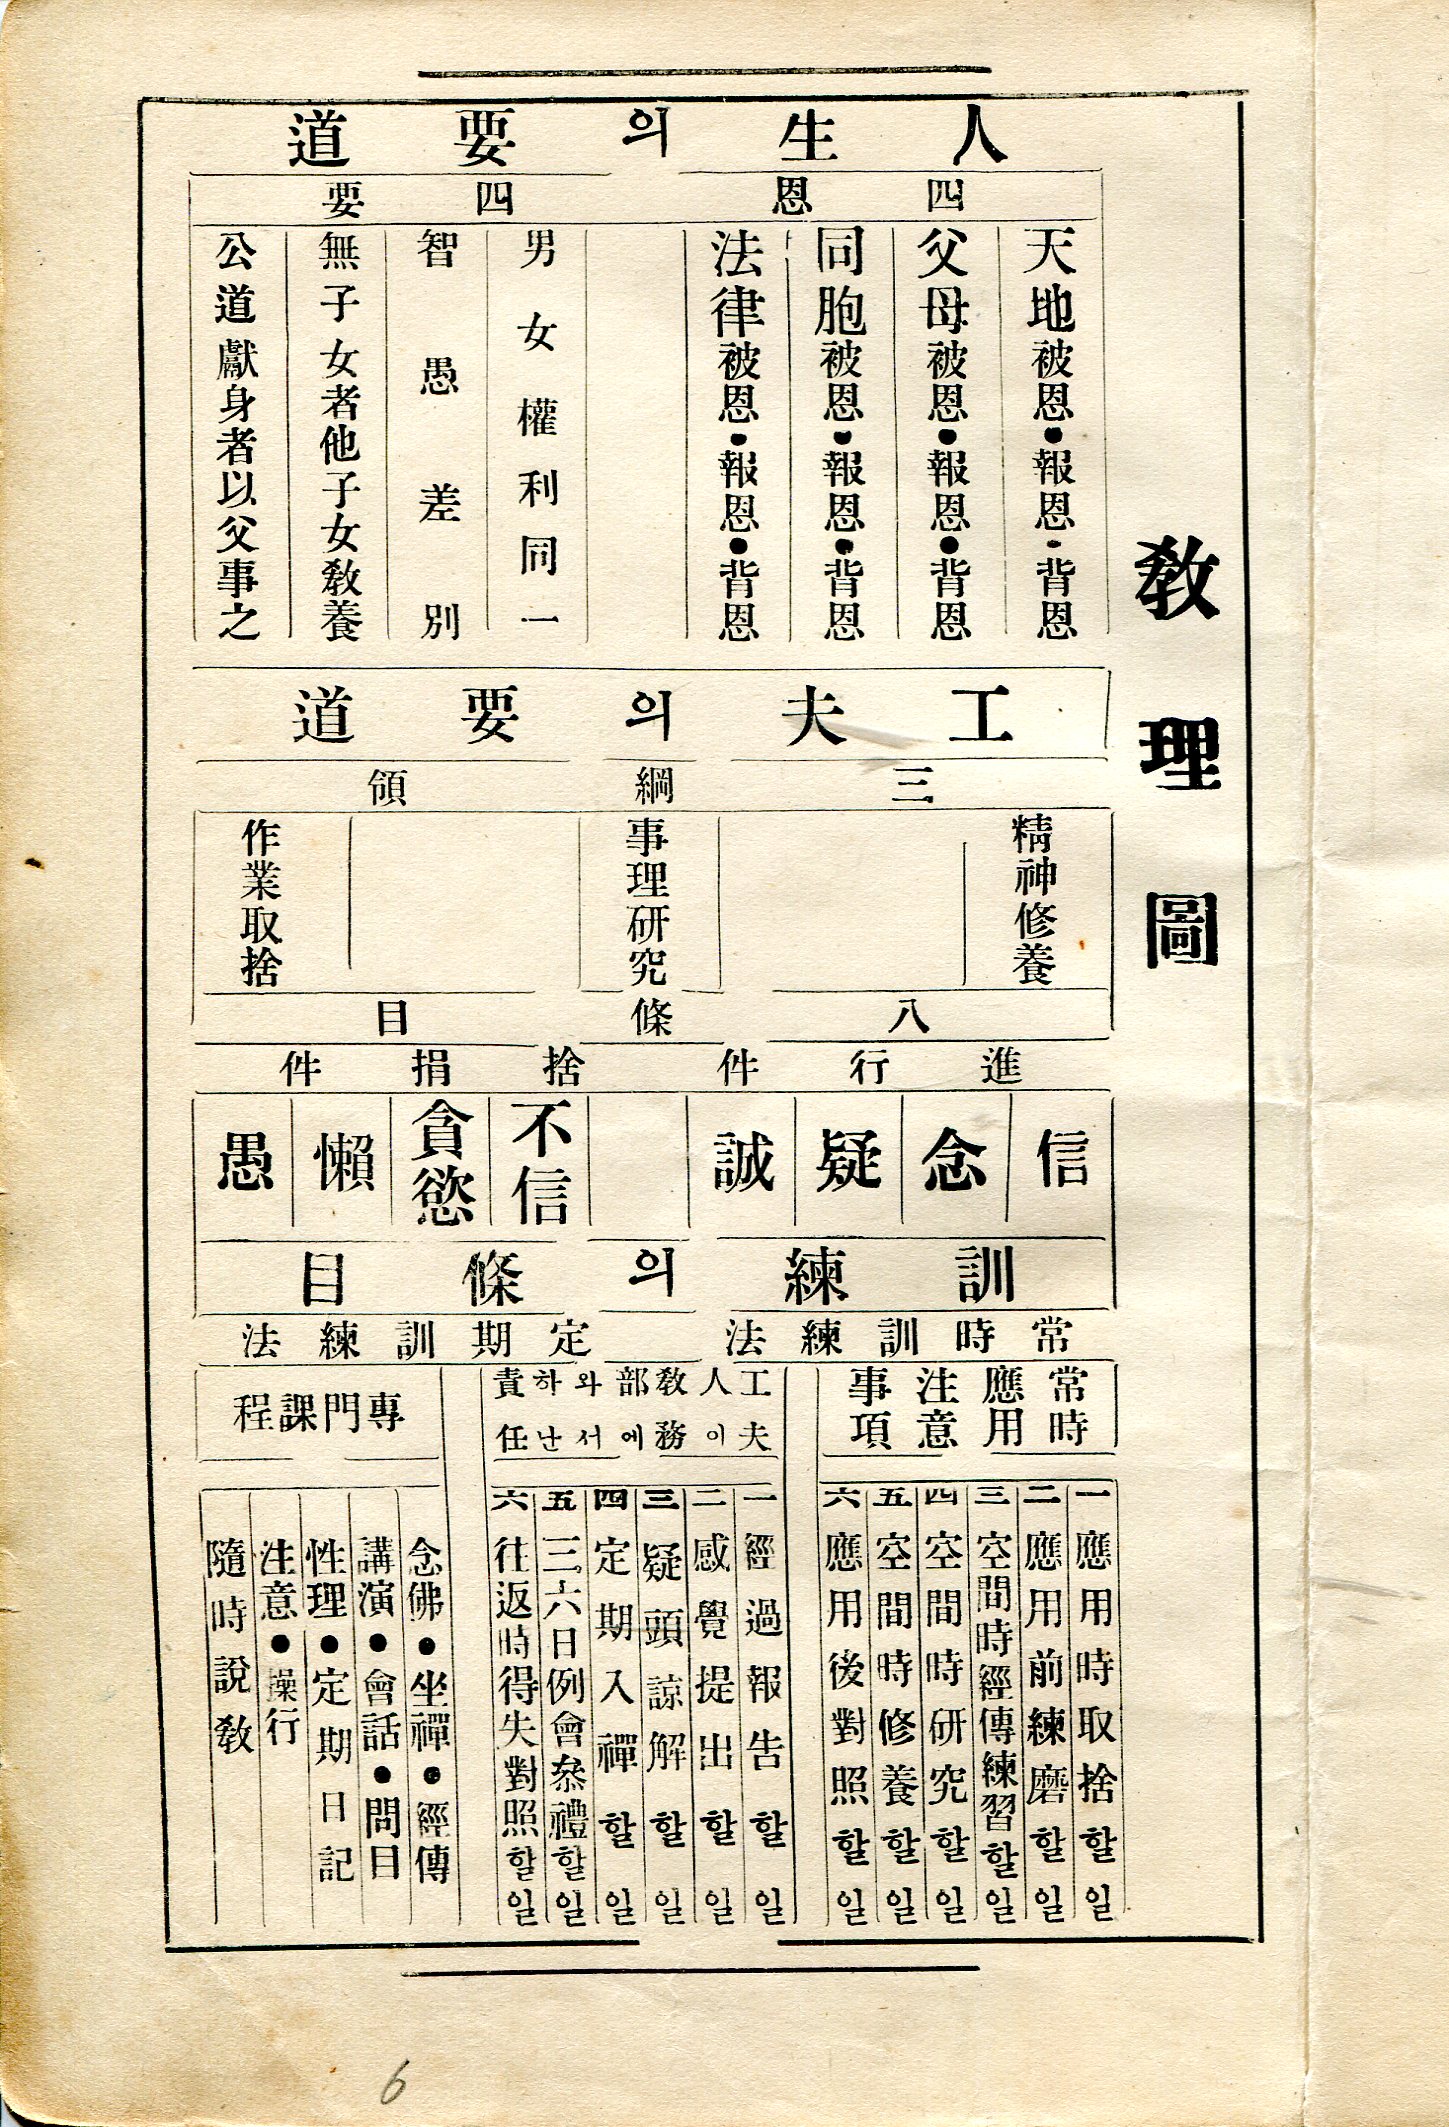 敎理圖
人生의要道
四恩
四要
天地被恩●報恩●背恩
父母被恩●報恩●背恩
同胞被恩●報恩●背恩
法律被恩●報恩●背恩
男女權利同一
智愚差別
無子女者他子女敎養
公道獻身者以父事之
工夫의要道
三綱領
精神修養
事理硏究
作業取捨
八條目
進行件
捨捐件
信
念
疑
誠
不信
貪慾
懶
愚
訓練의條目
常時訓練法
定期訓練法
常時應用注意事項
工夫人이敎務部에와서하난責任
專門課程
一 應用時取捨할일
二 應用前練磨할일
三 空間時經傳練習할일
四 空間時硏究할일
五 空間時修養할일
六 應用後對照할일
一 經過報告할일
二 感覺提出할일
三 疑頭諒解할일
四 定期入禪할일
五 三六日例會叅禮할일
六 往返時得失對照할일
念佛●坐禪●經傳
講演●會話●問目
性理●定期日記
注意●操行
隨時說敎
6